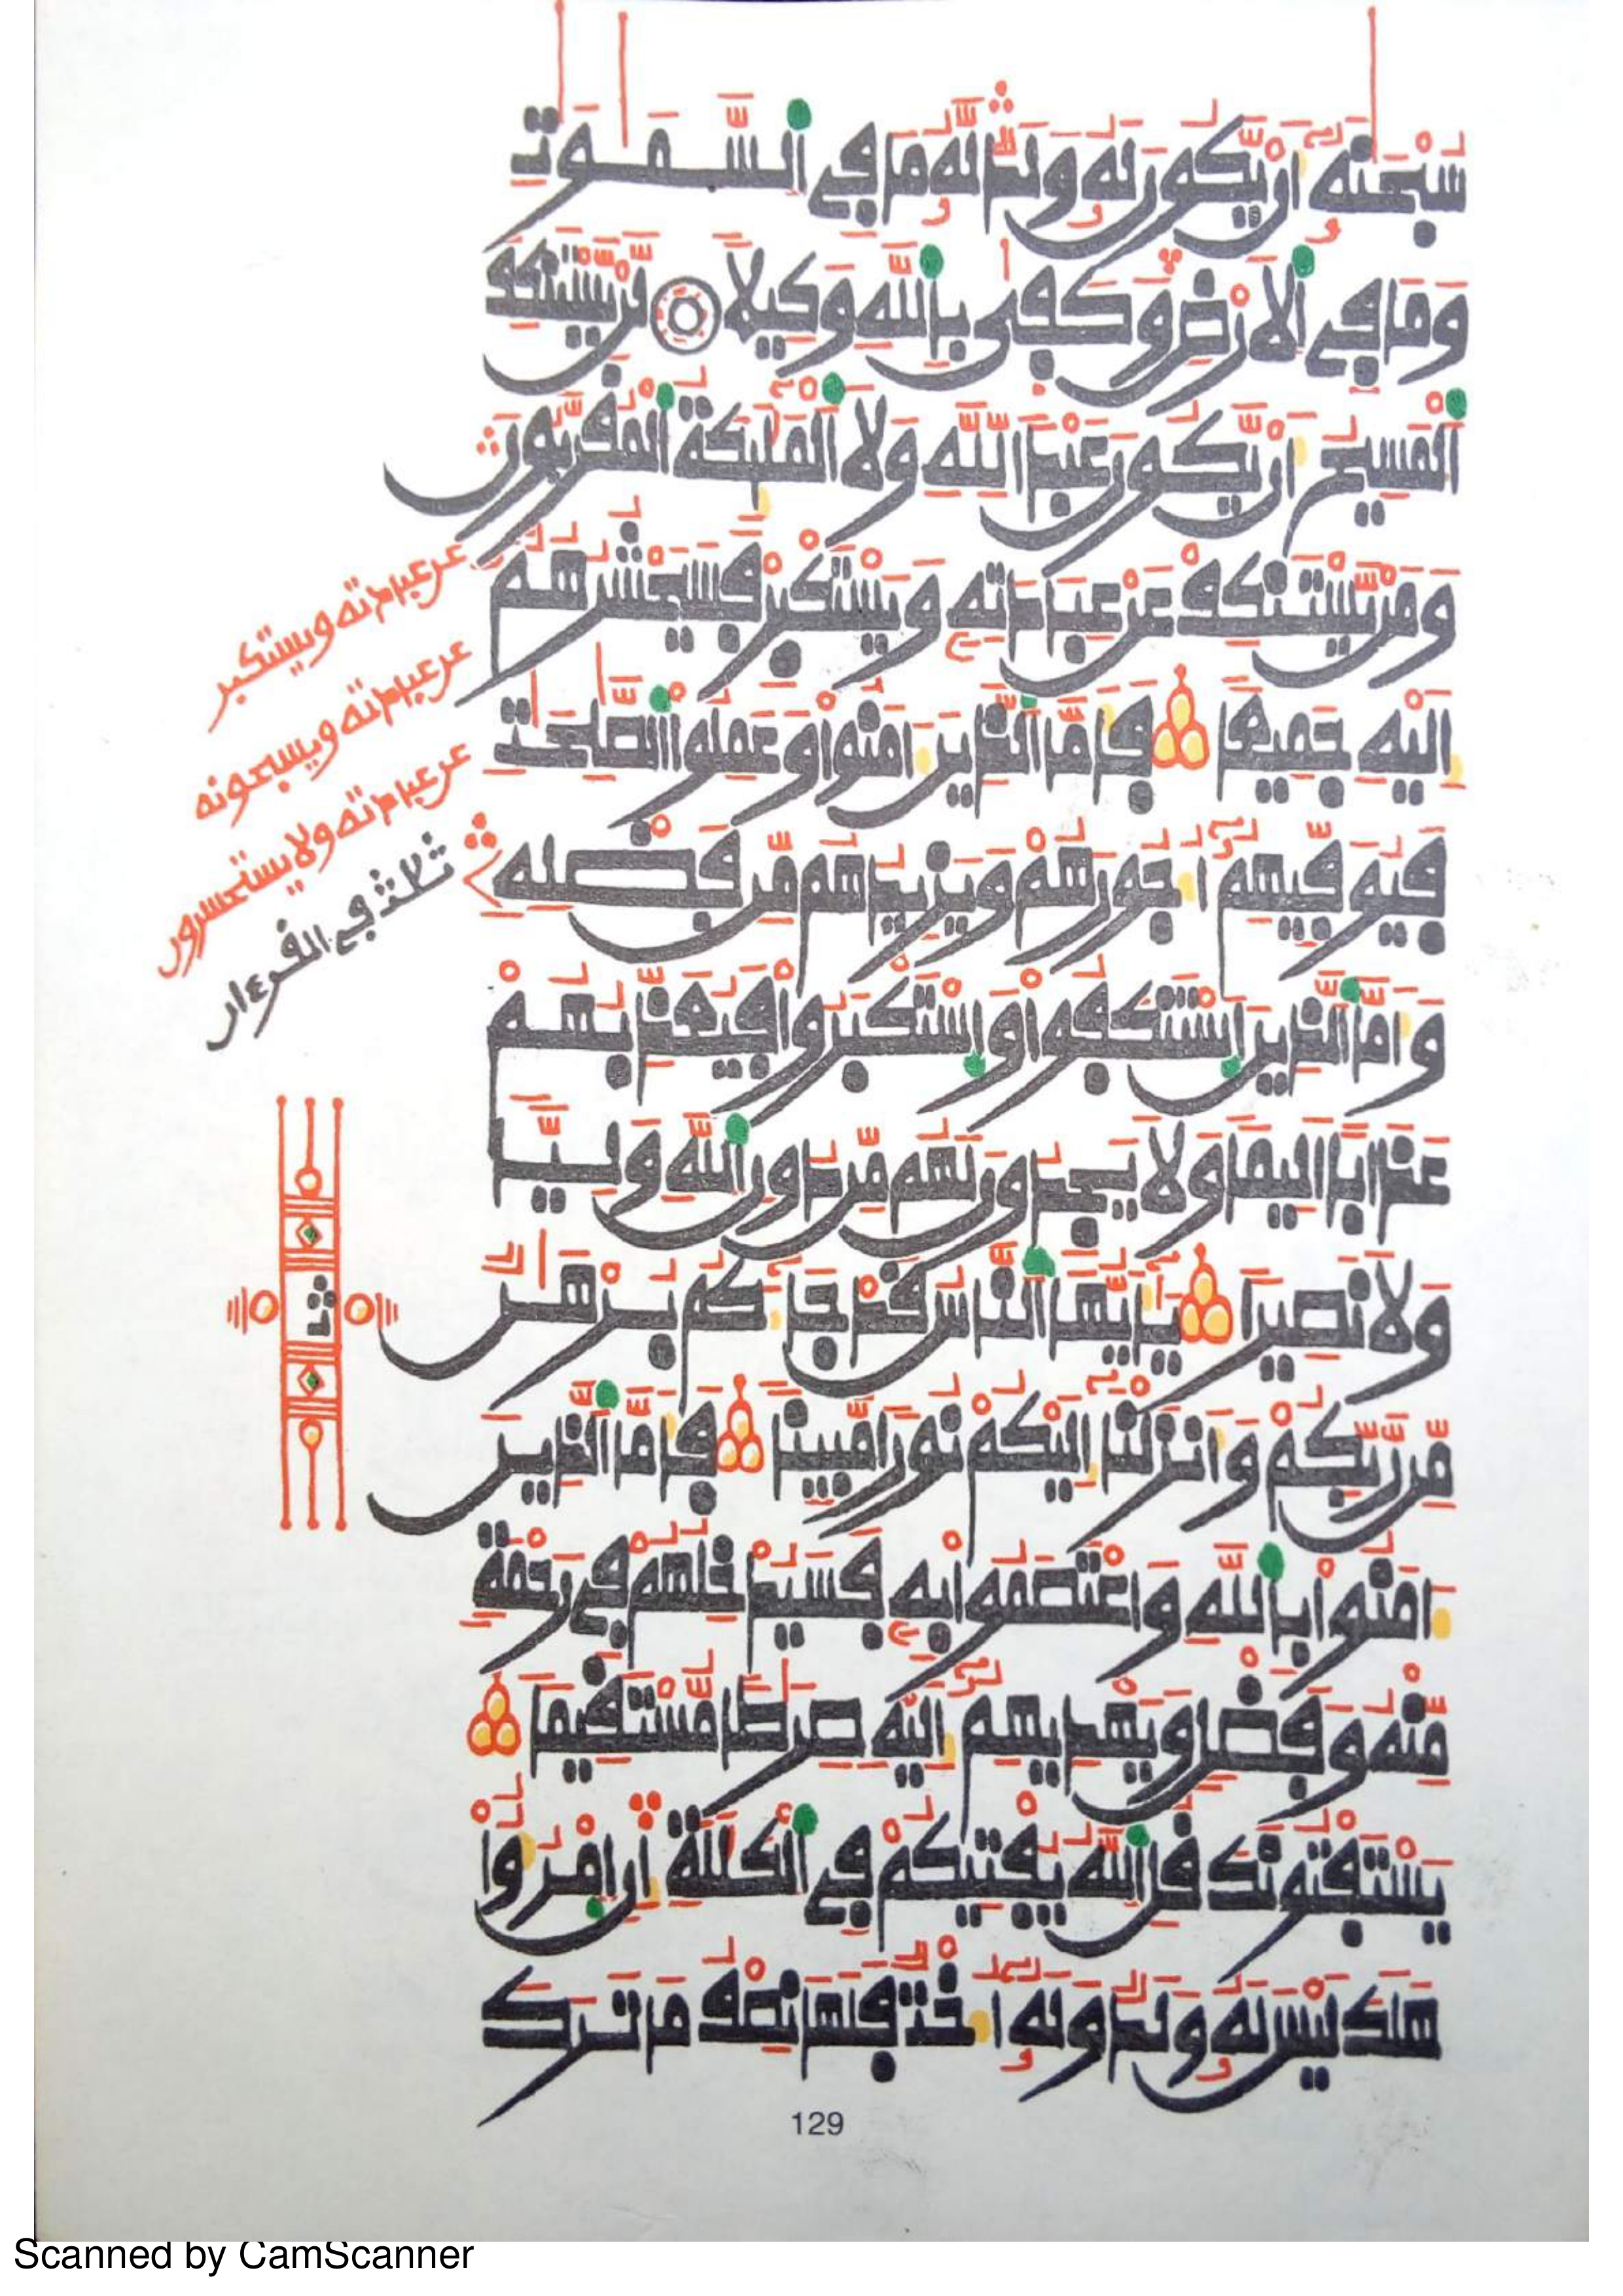 سُبْحَٰنَهُۥٓ أَنْ يَّكُونَ لَهُۥ وَلَدٌ لَّهُۥ مَا فِے اِ۬لسَّمَٰوَٰتِ
وَمَا فِے اِ۬لَارْضِ وَكَف۪ىٰ بِاللَّهِ وَكِيلاً لَّنْ يَّسْتَنكِفَ
اَ۬لْمَسِيحُ أَنْ يَّكُونَ عَبْداً لِّلهِ وَلَا اَ۬لْمَلَٰٓئِكَةُ اُ۬لْمُقَرَّبُونَ
وَمَنْ يَّسْتَنكِفْ عَنْ عِبَادَتِهِۦ وَيَسْتَكْبِرْ فَسَيَحْشُرُهُمُۥٓ
إِلَيْهِ جَمِيعاً فَأَمَّا اَ۬لذِينَ ءَامَنُوا وَعَمِلُوا اُ۬لصَّٰلِحَٰتِ
فَيُوَفِّيهِمُۥٓ أُجُورَهُمْ وَيَزِيدُهُم مِّن فَضْلِهِ
وَأَمَّا اَ۬لذِينَ اَ۪سْتَنكَفُوا وَاسْتَكْبَرُوا فَيُعَذِّبُهُمْ
عَذَاباً اَلِيماً وَلَا يَجِدُونَ لَهُم مِّن دُونِ اِ۬للَّهِ وَلِيّاً
وَلَا نَصِيراً يَٰٓأَيُّهَا اَ۬لنَّاسُ قَدْ جَآءَكُم بُرْهَٰنٌ
مِّن رَّبِّكُمْ وَأَنزَلْنَآ إِلَيْكُمْ نُوراً مُّبِيناً فَأَمَّا اَ۬لذِينَ
ءَامَنُوا بِاللَّهِ وَاعْتَصَمُوا بِهِۦ فَسَيُدْخِلُهُمْ فِے رَحْمَةٍ
مِّنْهُ وَفَضْلٍ وَيَهْدِيهِمُۥٓ إِلَيْهِ صِرَٰطاً مُّسْتَقِيماً
يَسْتَفْتُونَكَ قُلِ اِ۬للَّهُ يُفْتِيكُمْ فِے اِ۬لْكَلَٰلَةِ إِنِ اِ۪مْرُؤٌا
هَلَكَ لَيْسَ لَهُۥ وَلَدٌ وَلَهُۥٓ أُخْتٌ فَلَهَا نِصْفُ مَا تَرَكَ
عن عبادته ويستكبر
عن عبادته ويسبحونه
عن عبادته ولا يستحسرون
ثلاث في القرءان
ثمن
129
Scanned by CamScanner